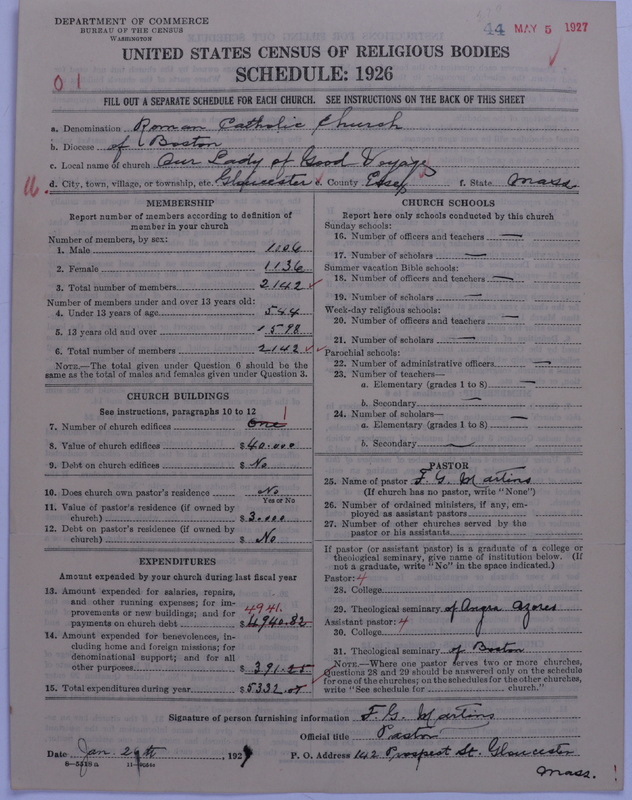 DEPARTMENT OF COMMERCE
BUREAU OF THE CENSUS
WASHINGTON
44 MAY 5 1927
UNITED STATES CENSUS OF RELIGIOUS BODIES
SCHEDULE: 1926
01
FILL OUT A SEPARATE SCHEDULE FOR EACH CHURCH. SEE INSTRUCTIONS ON THE BACK OF THIS SHEET
a. Denomination Roman Catholic Church
b. Diocese of Boston
c. Local name of church Our Lady of Good Voyage
d. City, town, village, or township, etc. Gloucester e. County Essex f. State Mass.
MEMBERSHIP
Report number of members according to definition of
member in your church
Number of members, by sex:
1. Male 1006
2. Female 1136
3. Total number of members 2142
Number of members under and over 13 years old:
4. Under 13 years of age 544
5. 13 years old and over 1598
6. Total number of members 2142
NOTE.—The total given under Question 6 should be
the same as the total of males and females given under Question 3.
CHURCH BUILDINGS
See instructions, paragraphs 10 to 12
7. Number of church edifices One 1
8. Value of church edifices $40.000
9. Debt on church edifices $ No
10. Does church own pastor's residence No
Yes or No
11. Value of pastor's residence (if owned by
church) $3.000
12. Debt on pastor's residence (if owned by
church) $ No
EXPENDITURES
Amount expended by your church during last fiscal year
13. Amount expended for salaries, repairs,
and other running expenses; for im-
provements or new buildings; and for
4941.
payments on church debt $4940.82
14. Amount expended for benevolences, in-
cluding home and foreign missions; for
denominational support; and for all
other purposes $391.25
15. Total expenditures during year $5332.07
CHURCH SCHOOLS
Report here only schools conducted by this church
Sunday schools:
16. Number of officers and teachers —
17. Number of scholars —
Summer vacation Bible schools:
18. Number of officers and teachers —
19. Number of scholars —
Week-day religious schools:
20. Number of officers and teachers —
21. Number of scholars —
Parochial schools:
22. Number of administrative officers —
23. Number of teachers—
a. Elementary (grades 1 to 8) —
b. Secondary —
24. Number of scholars—
a. Elementary (grades 1 to 8) —
b. Secondary —
PASTOR
25. Name of pastor F. G. Martins
(If church has no pastor, write "None")
26. Number of ordained ministers, if any, em-
ployed as assistant pastors
27. Number of other churches served by the
pastor or his assistants
If pastor (or assistant pastor) is a graduate of a college or
theological seminary, give name of institution below. (If
not a graduate, write "No" in the space indicated.)
Pastor: 4
28. College
29. Theological seminary of Angra Azores
Assistant pastor: 4
30. College
31. Theological seminary of Boston
NOTE.—Where one pastor serves two or more churches,
Questions 28 and 29 should be answered only on the schedule
for one of the churches; on the schedules for the other churches,
write "See schedule for church."
Signature of person furnishing information F. G. Martins
Official title Pastor
Date Jan. 29th, 1927 P. O. Address 142 Prospect St. Gloucester
Mass.